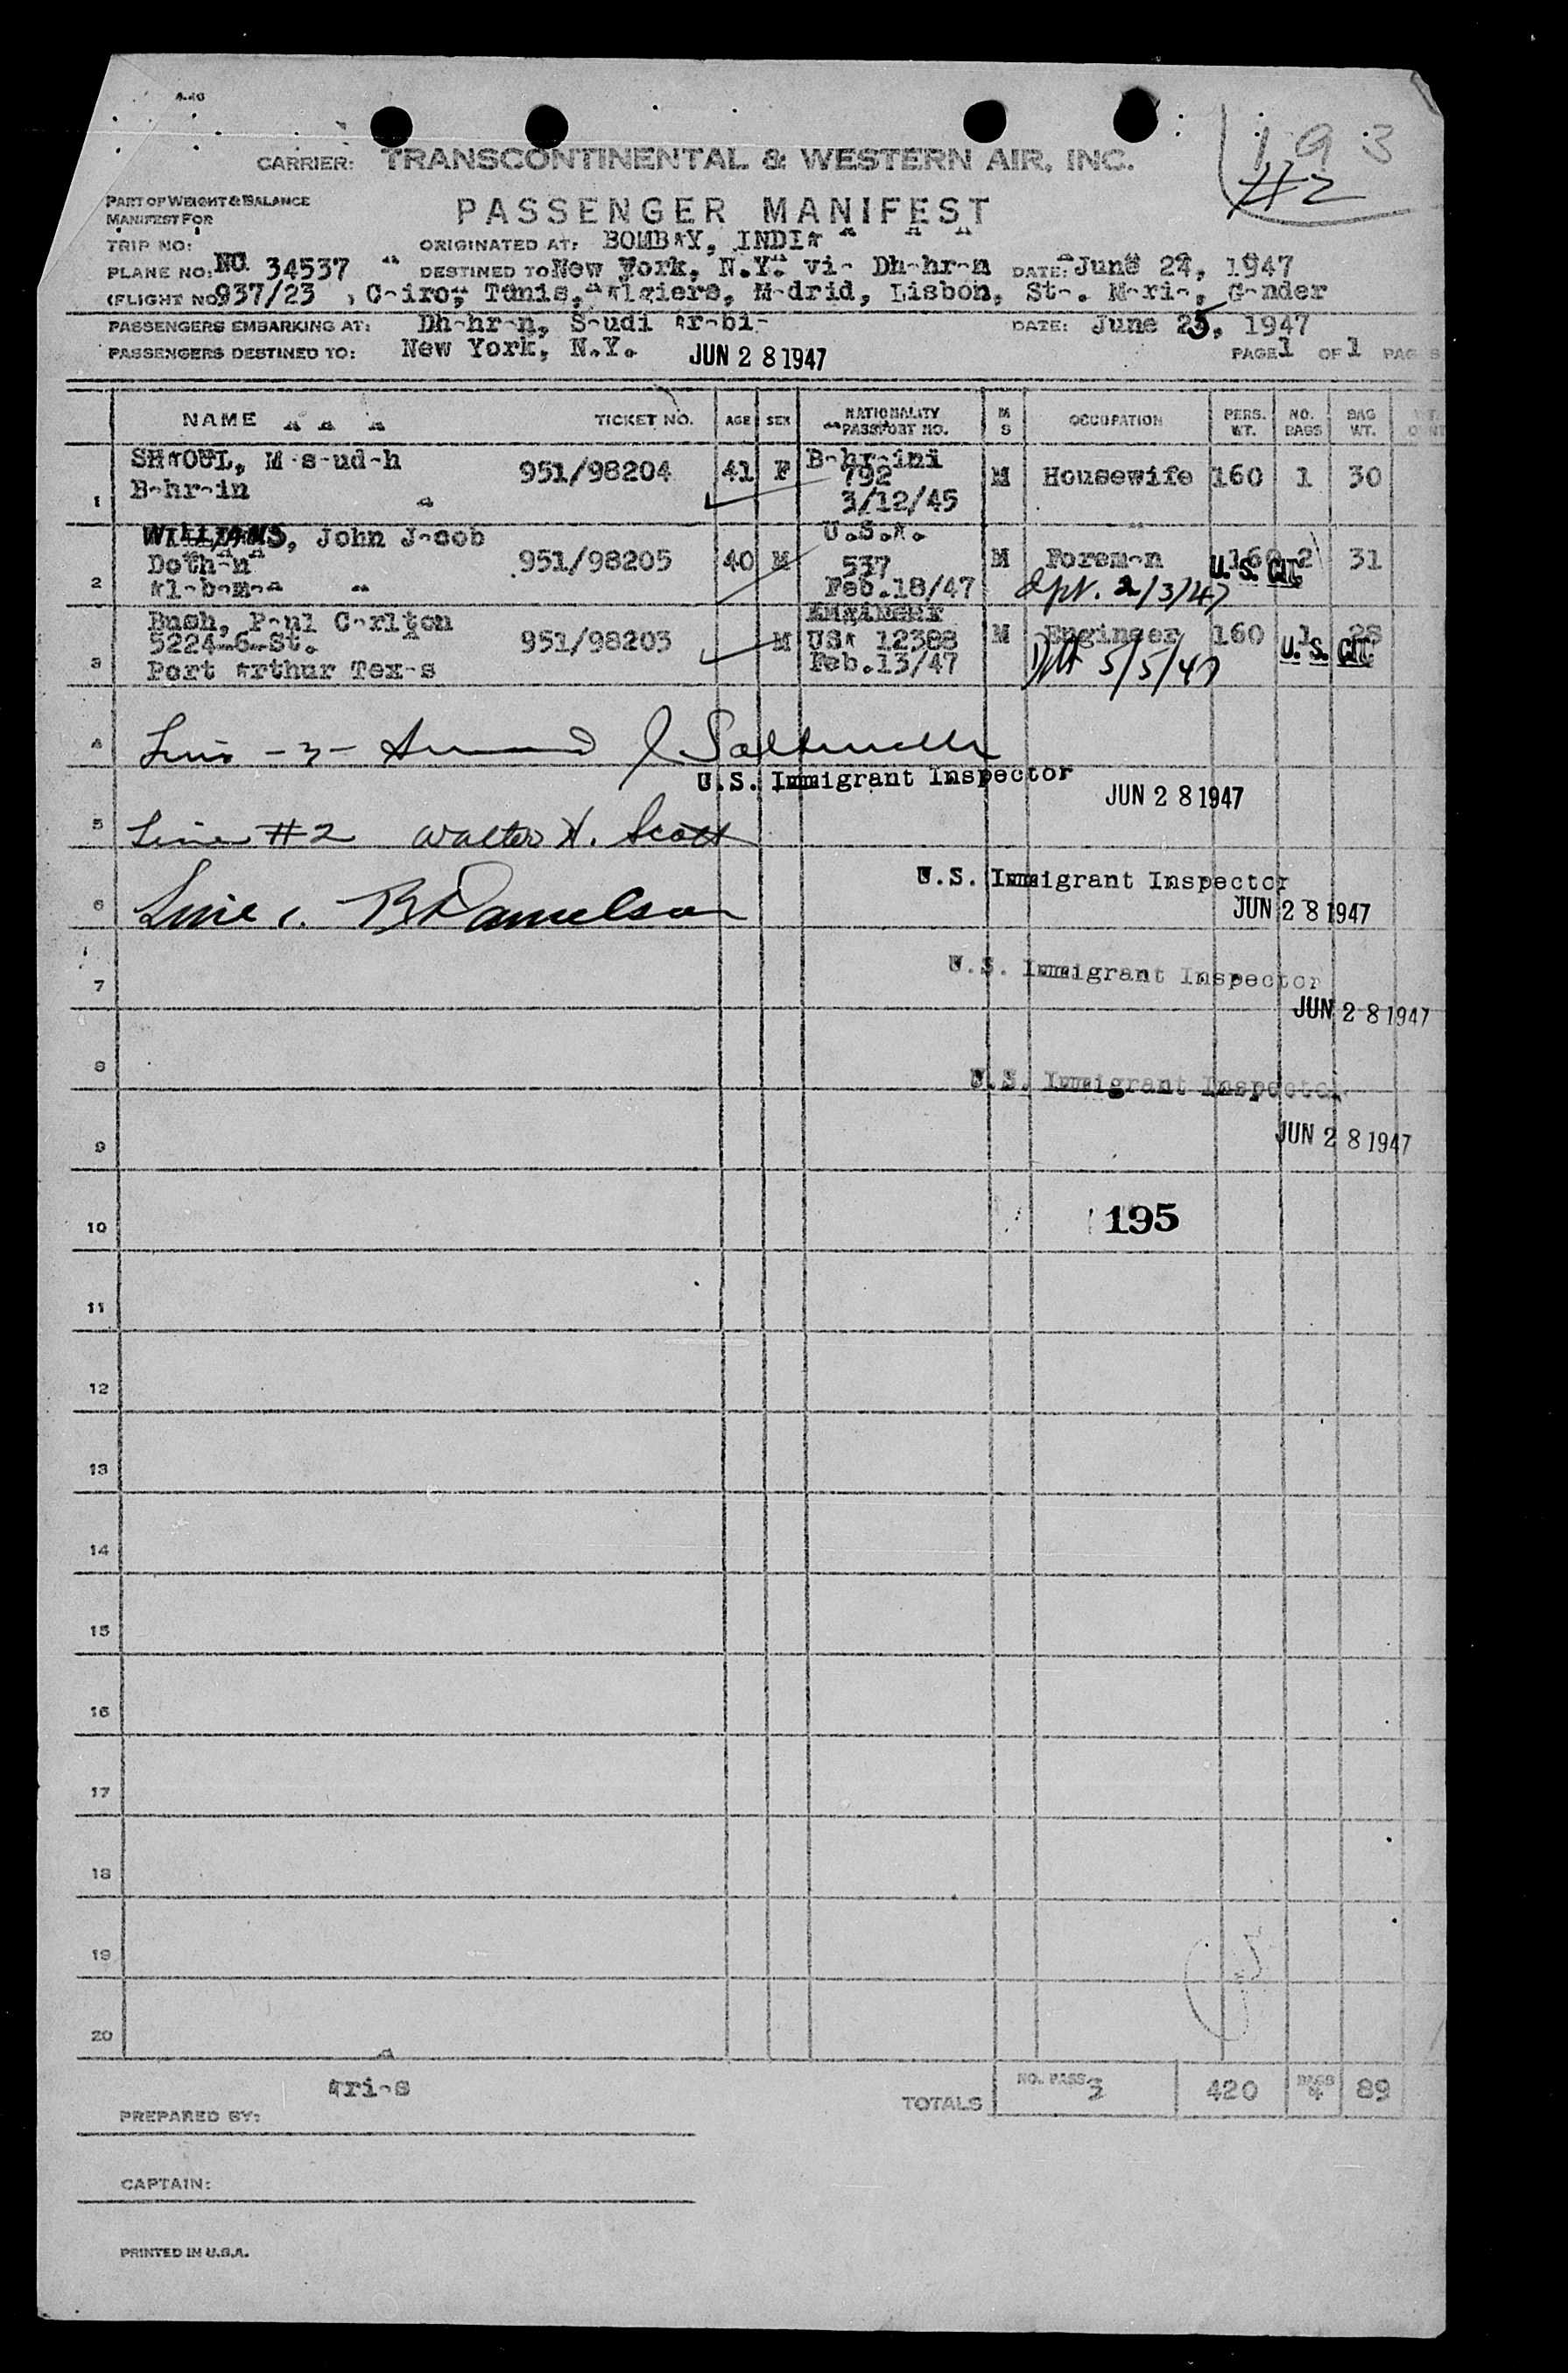 193
#2
CARRIER: TRANSCONTINENTAL & WESTERN AIR, INC.
PART OF WEIGHT & BALANCE
MANIFEST FOR
PASSENGER MANIFEST
TRIP NO:
ORIGINATED AT: BOMBAY, INDIA
PLANE NO: NC 34537 DESTINED TO New York, N.Y. via Dhahran DATE: June 24, 1947
(FLIGHT NO 937/23 , Cairo, Tunis, Algiers, Madrid, Lisbon, Sta. Maria, Gander
PASSENGERS EMBARKING AT: Dhahran, Saudi Arabia DATE: June 25, 1947
PASSENGERS DESTINED TO: New York, N.Y. JUN 28 1947 PAGE 1 OF 1 PAG S
NAME TICKET NO. AGE SEX NATIONALITY PASSPORT NO. M S OCCUPATION PERS. WT. NO. BAGS BAG WT.
SHAOUL, Masaudah 951/98204 41 F Bahraini M Housewife 160 1 30
Bahrain 792
1 3/12/45
WILLIAMS, John Jacob 951/98205 40 M U.S.A. M Foreman 160 2 31
Dothan 537 U. S. CIT
2 Alabama Feb.18/47 dpt. 2/3/47
Bush, Paul Carlton 951/98203 M Engineer M Engineer 160 1 28
5224-6-St. USA 12388 U. S. CIT
3 Port Arthur Texas Feb.13/47 Dpt 5/5/47
4 Line -3-
U.S. Immigrant Inspector
JUN 28 1947
5 Line #2 Walter H. Scott
U.S. Immigrant Inspector
6 Line 1. B Danielson
JUN 28 1947
7 U.S. Immigrant Inspector
JUN 28 1947
8 U.S. Immigrant Inspector
9 JUN 28 1947
10 195
11
12
13
14
15
16
17
18
19
20
Arias
PREPARED BY:
TOTALS NO. PASS 3 420 BAGS 4 89
CAPTAIN:
PRINTED IN U.S.A.